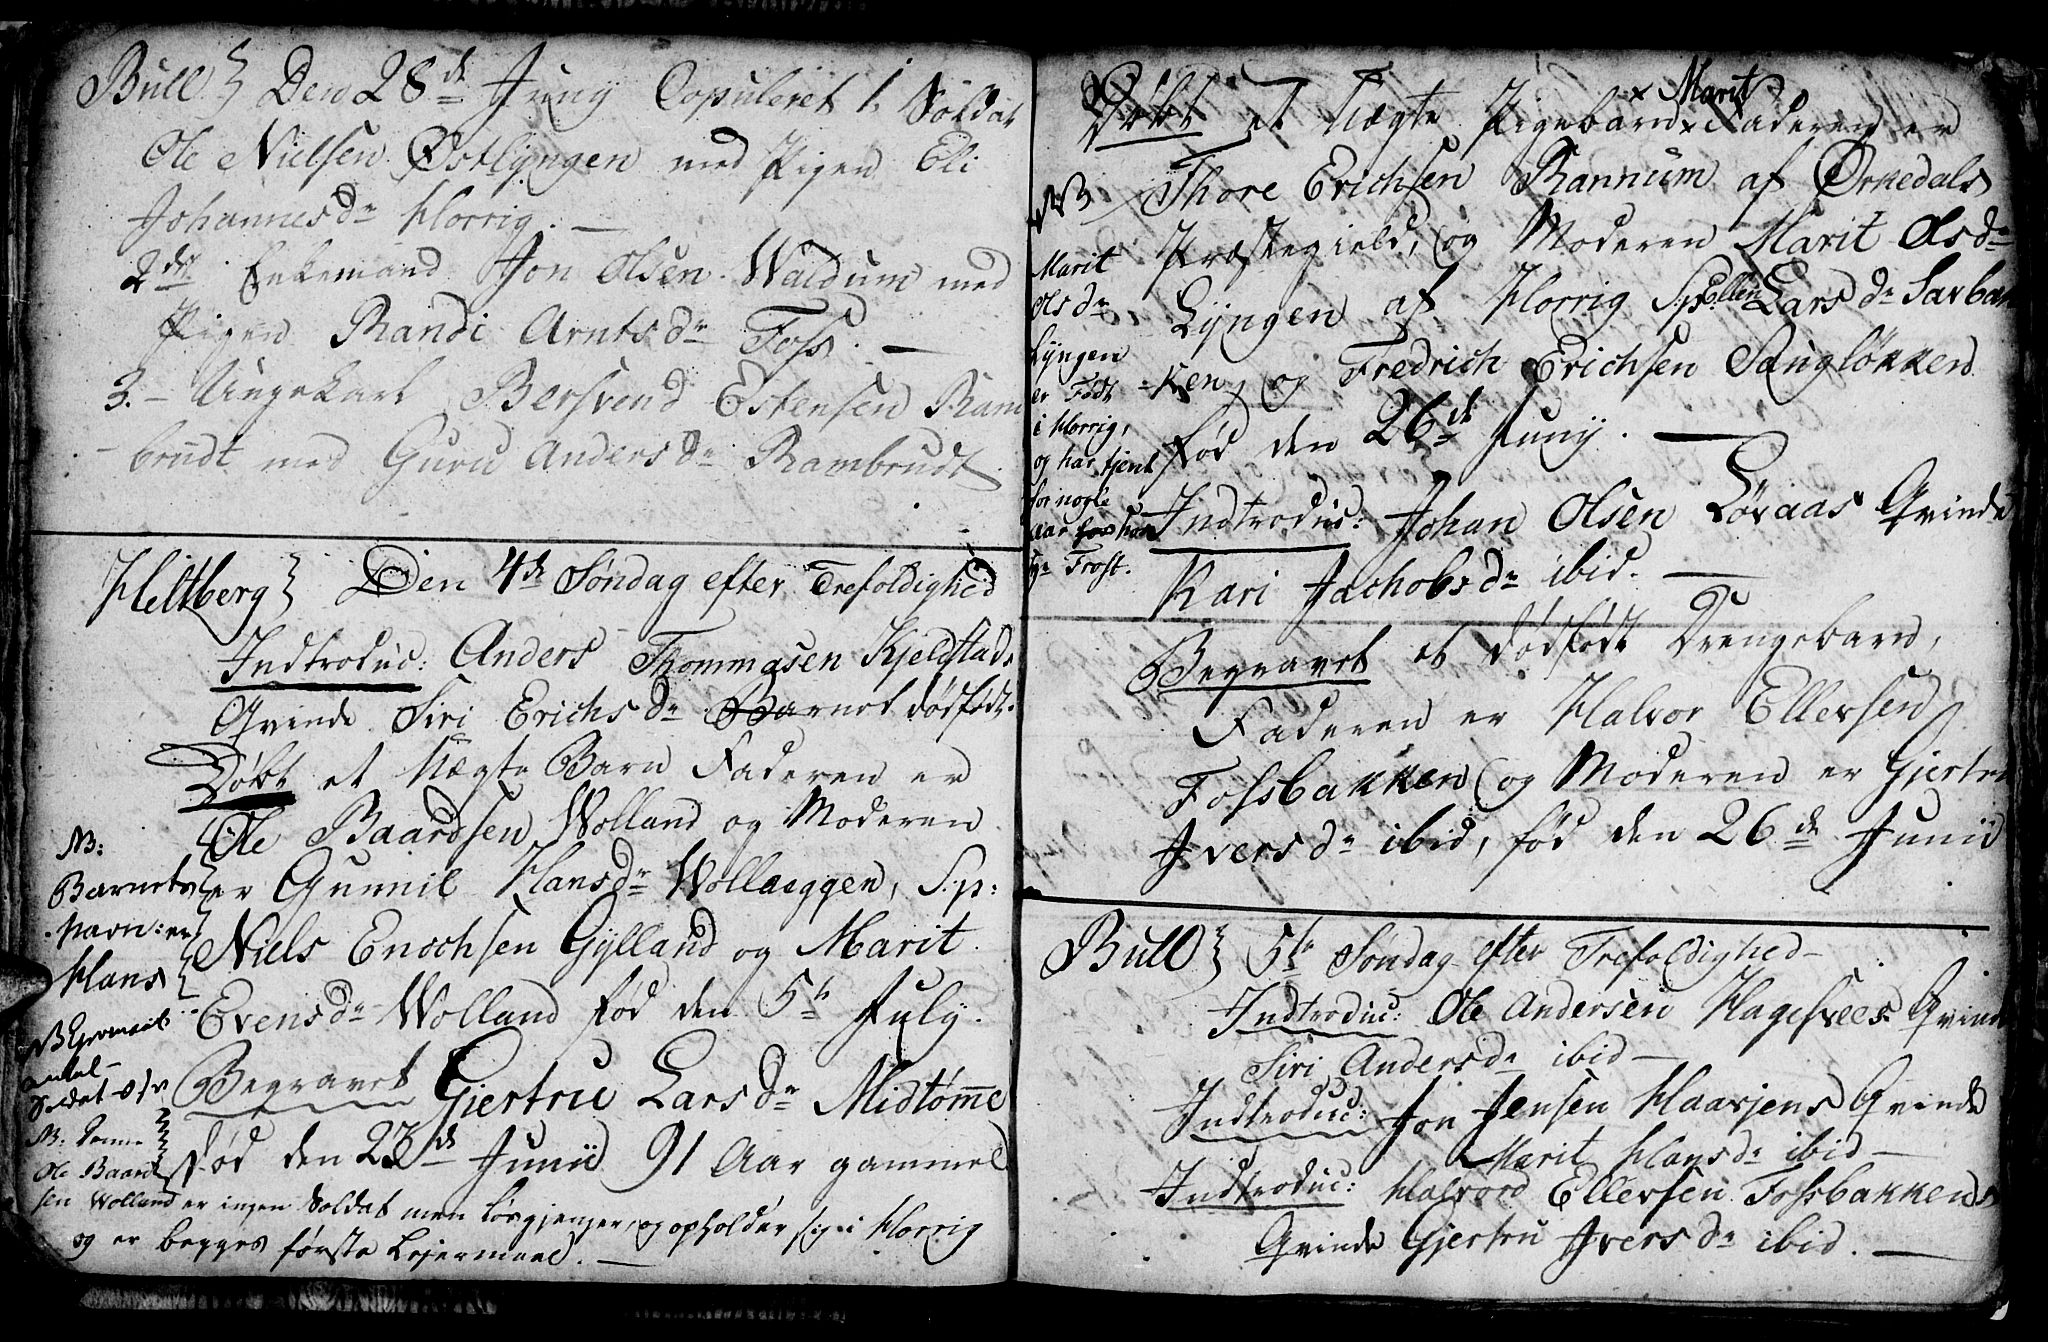 Bull } Den 28de Juny Copuleret 1. Soldat
Ole Nielsen Østlyngen med Pigen Eli
Johannesdr Horrig. —
2det Enkemand Jon Olsen Waldum med
Pigen Randi Arntsdr Foss. —
3. – Ungekarl Bersvend Estensen Ram
-brudt med Guru Andersdr Rambrudt.
Heltberg } Den 4de Søndag efter Trefoldighed
Indtroduc: Anders Thommasen Kjeldstads
Qvinde Siri Erichsdr Barnet dødfødt.
Døbt et Uægte Barn Faderen er
Ole Baardsen Wolland og Moderen
er Gunnil Hansdr Wollaeggen, Sp:
Niels Enochsen Gylland og Marit
Evensdr Wolland fød den 5te July.
Begravet Gjertrue Larsdr Midtømme
fød den 23de Junii 91 Aar gammel
NB:
Barnets
Navn: er
Hans
NB
NB:
Ole Baard
sen Wolland er ingen Soldat men Løsgjenger, og opholder sig i Horrig
og er begges første Lejermaal. —
Døbt et Uægte Pigebarn x Marit x Faderen er
Thore Erichsen Rannum af Ørkedals
Præstegield, og Moderen Marit Olsdr
Lyngen af Horrig Sp: Ellen Larsdr Sarbak
-ken, og Fredrich Erichsen Saugløkken
fød den 26de Juny. —
NB
Marit
Olsdr
Lyngen
er Født
i Horrig,
og har tjent
for nogle
Aar hos
Frost.
Indtroduc: Johan Olsen Løvaas Qvinde
Kari Jachobsdr ibid. —
Begravet et dødfødt Drengebarn,
Faderen er Halvor Ellevsen
Fossbakken og Moderen er Gjertru
Iversdr ibid, fød den 26de Junii
Bull } 5te Søndag efter Trefoldighed –
Indtroduc: Ole Andersen Hagesvees Qvinde
Siri Andersdr ibid —
Indtroduc: Jon Jensen Haarjens Qvinde
Marit Hansdr ibid —
Indtroduc: Halvord Ellevsen Fossbakkens
Qvinde Gjertru Iversdr ibid. —